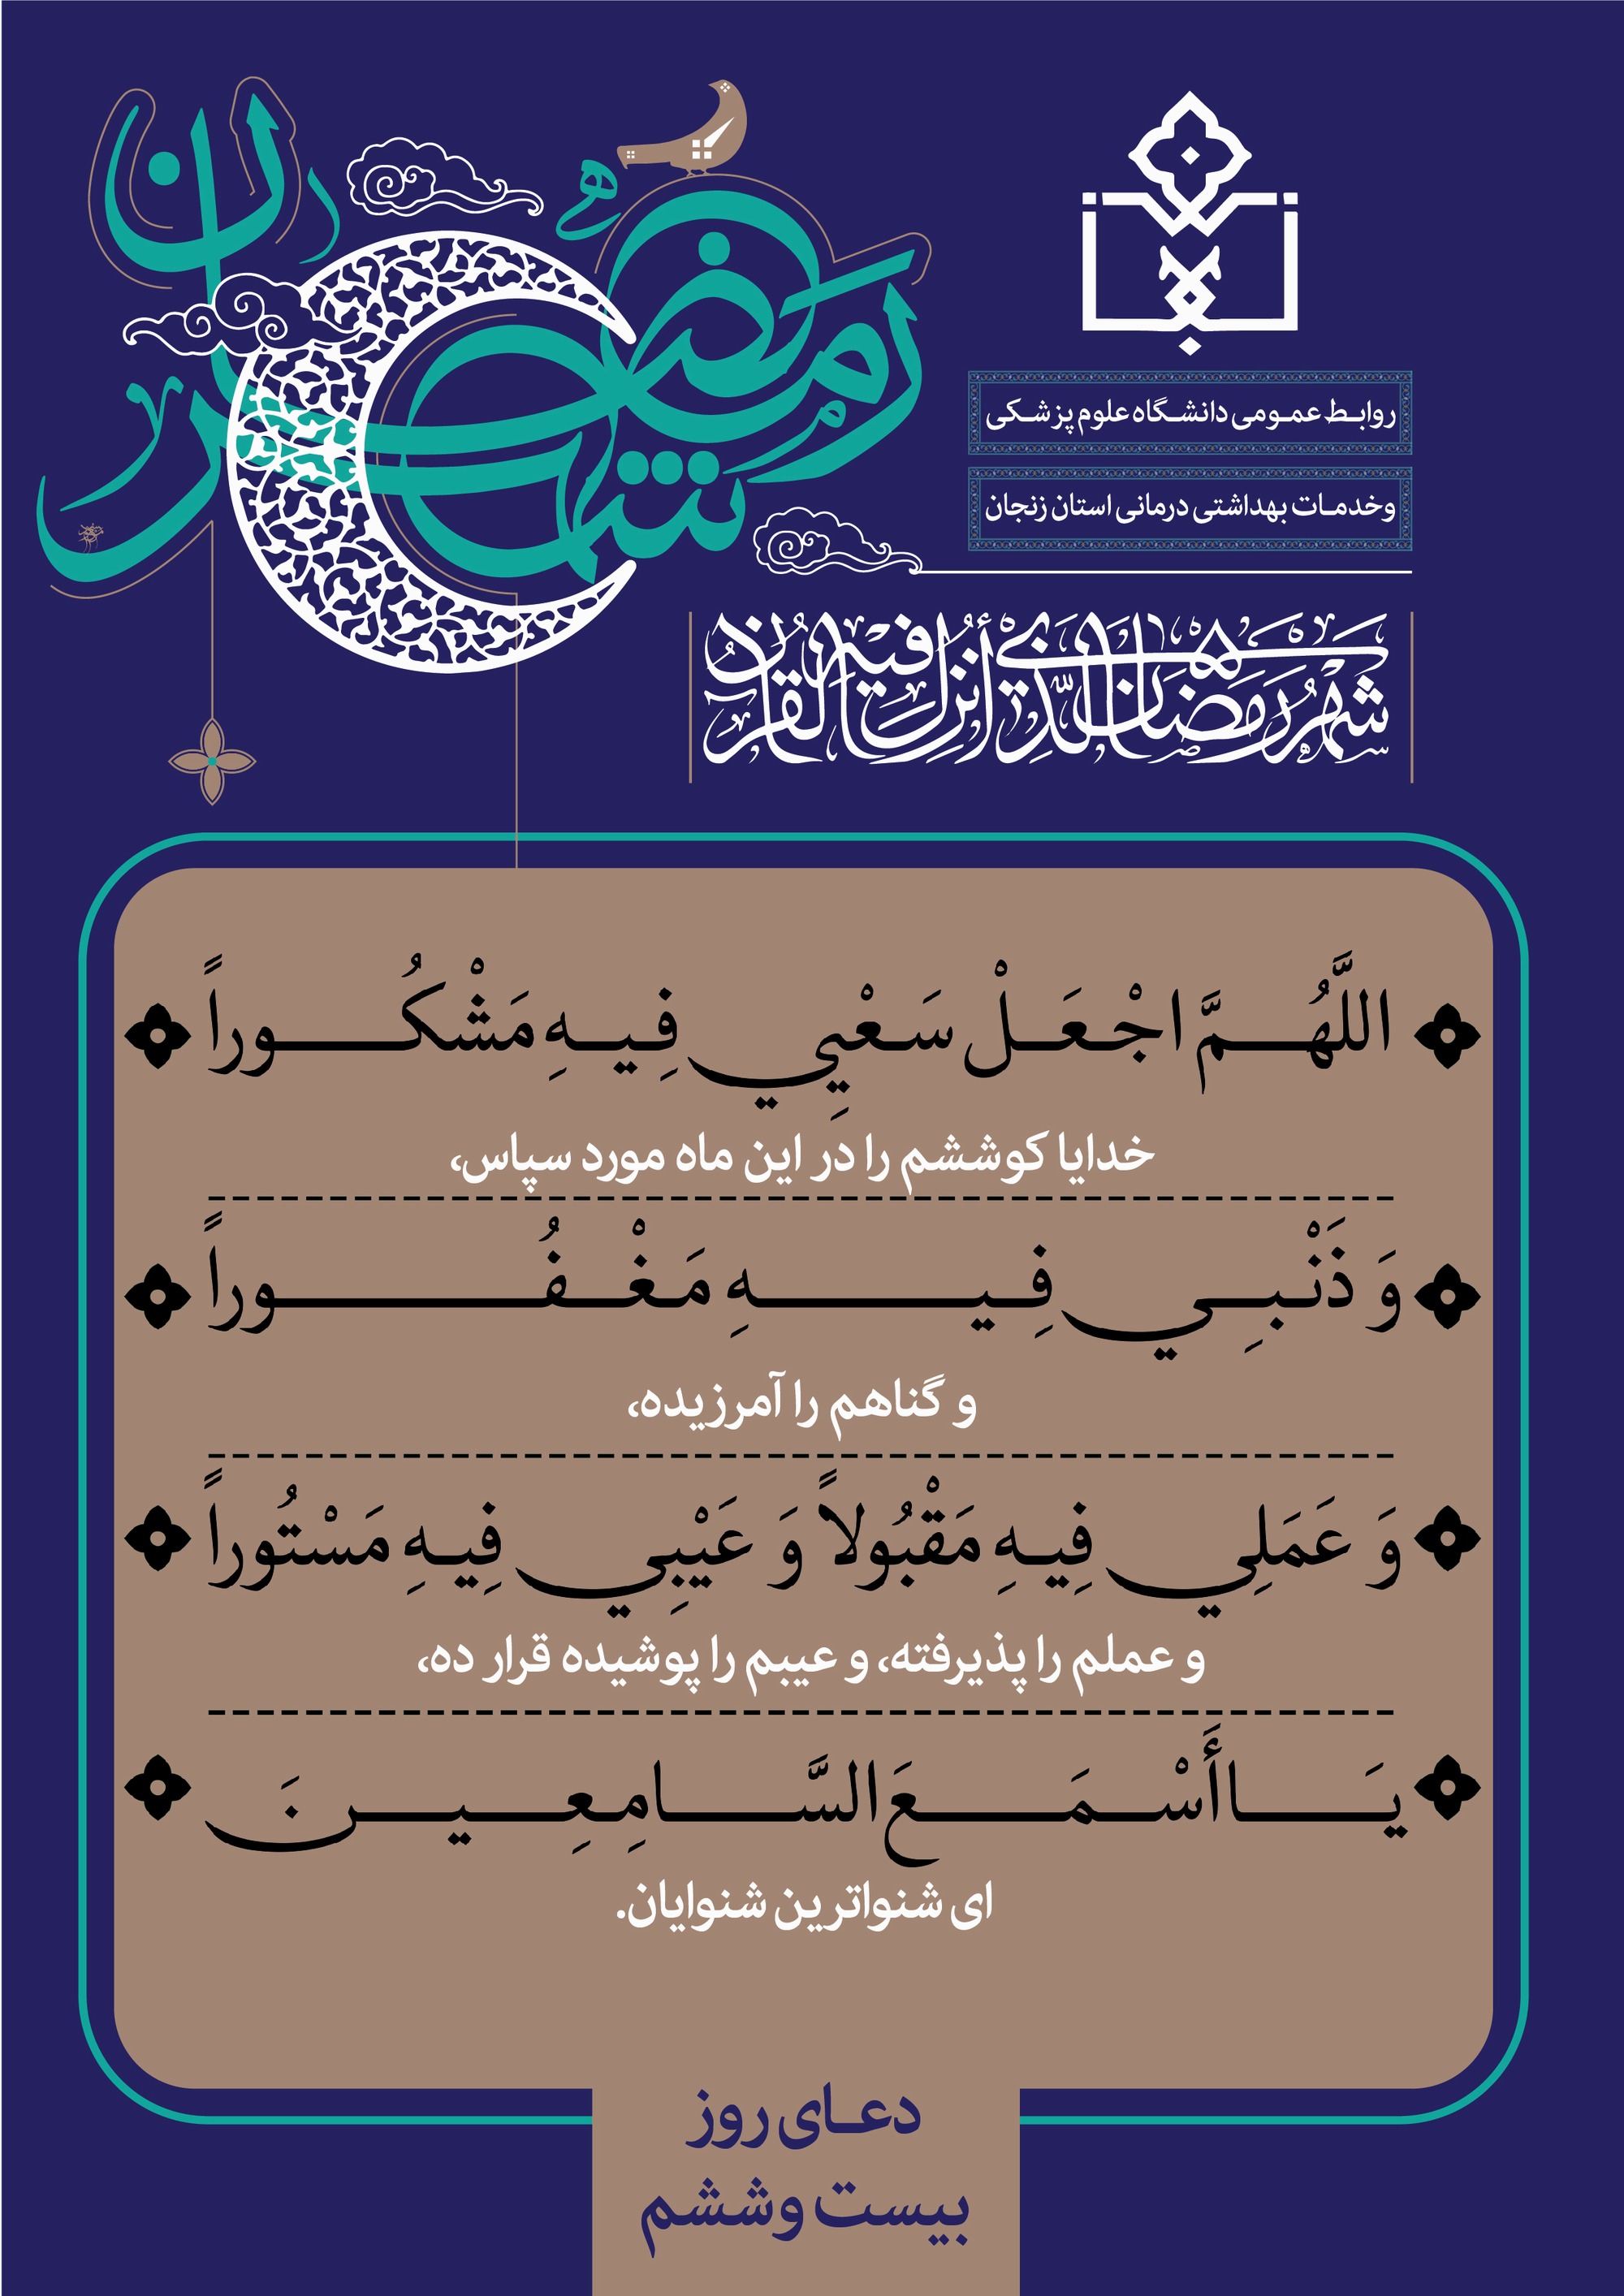 شهر رمضان
روابط عمومی دانشگاه علوم پزشکی
وخدمات بهداشتی درمانی استان زنجان
شهر رمضان الذی أنزل فیه القرآن
اللَّهُمَّ اجْعَلْ سَعْيِي فِيهِ مَشْكُوراً
خدایا کوششم را در این ماه مورد سپاس،
وَ ذَنْبِي فِيهِ مَغْفُوراً
و گناهم را آمرزیده،
وَ عَمَلِي فِيهِ مَقْبُولاً وَ عَيْبِي فِيهِ مَسْتُوراً
و عملم را پذیرفته، و عیبم را پوشیده قرار ده،
يَا أَسْمَعَ السَّامِعِينَ
ای شنواترین شنوایان.
دعای روز
بیست وششم